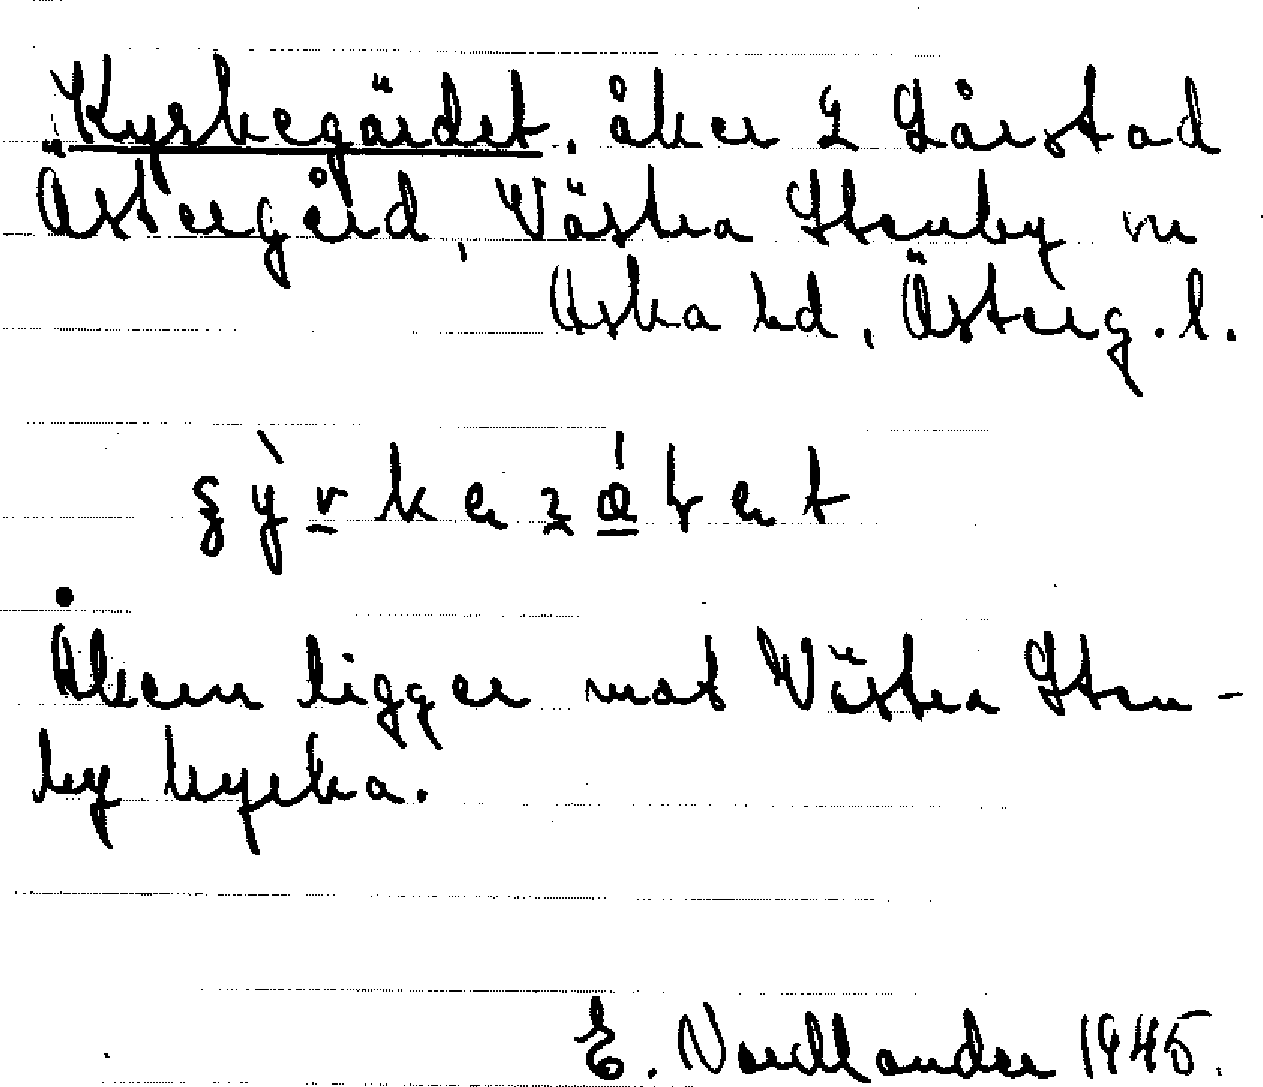 Kyrkegärdet. åker I Lårstad
Östergård, Västra Stenby sn
Aska hd, Österg. l.
Åkern ligger mot Västra Sten-
by kyrka.
E. Nordlander 1945.